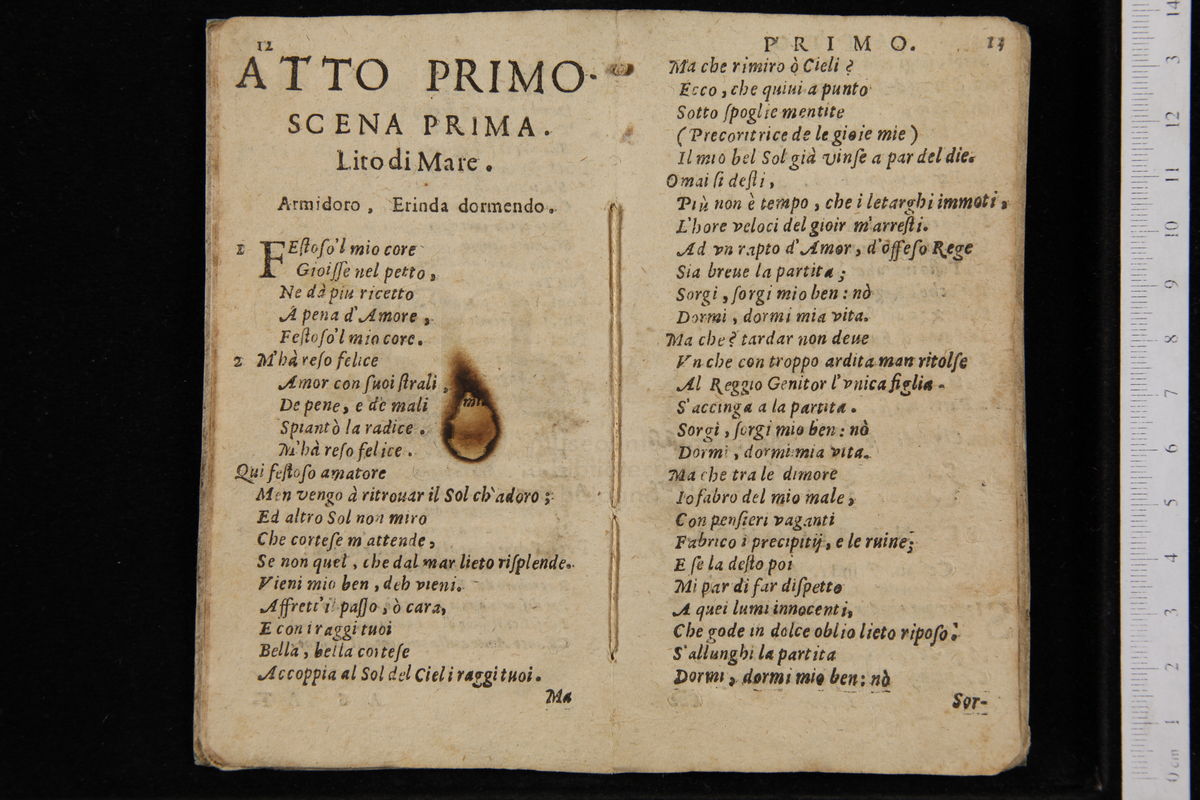 12
ATTO PRIMO.
SCENA PRIMA.
Lito di Mare.
Armidoro, Erinda dormendo.
1 FEſtoſo'l mio core
Gioiſſe nel petto,
Ne dà piu ricetto
A pena d'Amore,
Feſtoſo'l mio core.
2 M'hà reſo felice
Amor con ſuoi ſtrali,
De pene, e de mali
Spiantò la radice.
M'hà reſo felice.
Qui feſtoſo amatore
Men vengo à ritrouar il Sol ch'adoro;
Ed altro Sol non miro
Che corteſe m'attende,
Se non quel, che dal mar lieto riſplende.
Vieni mio ben, deh vieni.
Affretti'il paſſo, ò cara,
E con i raggi tuoi
Bella, bella corteſe
Accoppia al Sol del Cieli raggi tuoi.
Ma
PRIMO. 13
Ma che rimiro ò Cieli?
Ecco, che quiui a punto
Sotto ſpoglie mentite
(Precorritrice de le gioie mie)
Il mio bel Sol già vinſe a par del die.
Omai ſi deſti,
Più non è tempo, che i letarghi immoti,
L'hore veloci del gioir m'arreſti.
Ad vn rapto d'Amor, d'offeſo Rege
Sia breue la partita;
Sorgi, ſorgi mio ben: nò
Dormi, dormi mia vita.
Ma che? tardar non deue
Vn che con troppo ardita man ritolſe
Al Reggio Genitor l'vnica figlia.
S'accinga a la partita.
Sorgi, ſorgi mio ben: nò
Dormi, dormi mia vita.
Ma che tra le dimore
Io fabro del mio male,
Con penſieri vaganti
Fabrico i precipitij, e le ruine;
E ſe la deſto poi
Mi par di far diſpetto
A quei lumi innocenti,
Che gode in dolce oblio lieto ripoſo.
S'allunghi la partita
Dormi, dormi mio ben: nò
Sor-